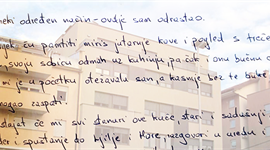 neki određen način - ovdje sam odrastao.
ću pamtiti miris jutarnje kave i pogled s treće
svoju sobicu odmah uz kuhinju pa čak i onu bučnu
mi je u početku otezavala san, a kasnije bez te buke
mogao zaspati.
će mi svi stanari ove kuće, stari i sadašnji
i spuštanje do hjilje i Hore razgovori u uredu i